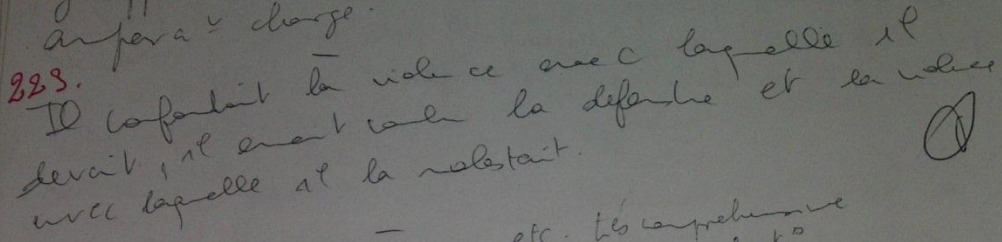 charge.
223.
Il confondait la violence avec laquelle il
devait, il avait voulu la défendre et la violence
avec laquelle il la molestait.
etc. très compréhensive